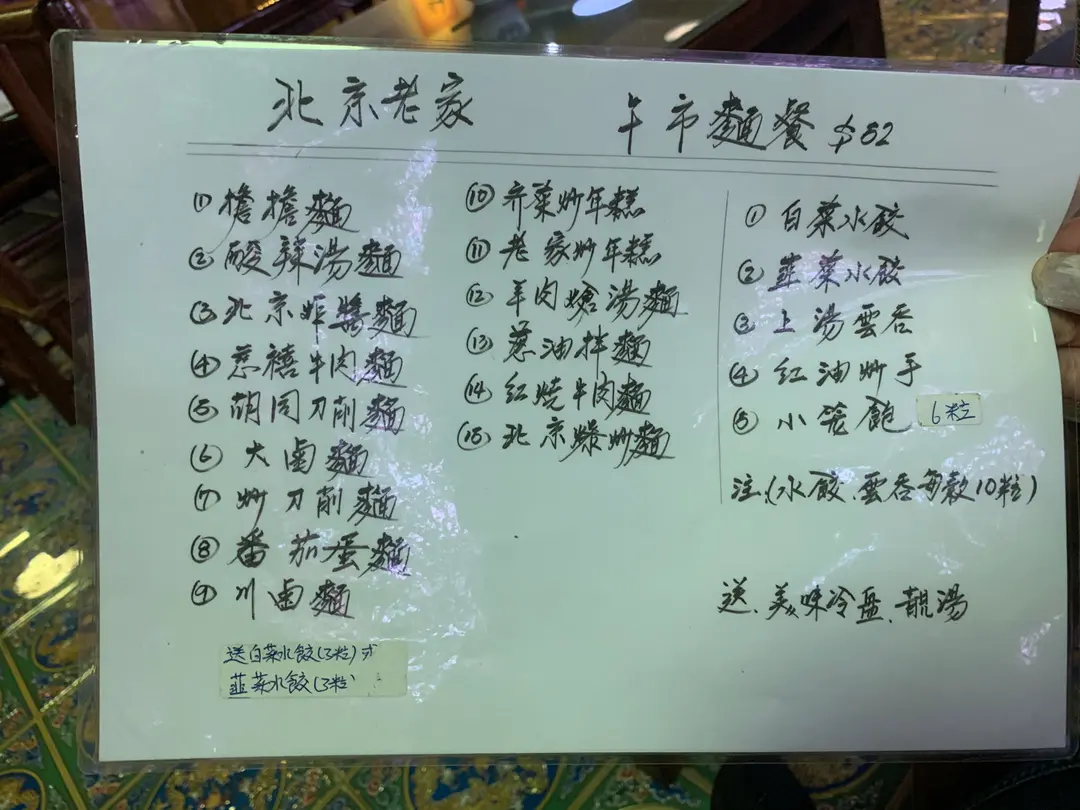 北京老家
午市麵餐 $82
① 擔擔麵
② 酸辣湯麵
③ 北京炸醬麵
④ 慈禧牛肉麵
⑤ 胡同刀削麵
⑥ 大鹵麵
⑦ 炒刀削麵
⑧ 番茄蛋麵
⑨ 川鹵麵
送白菜水餃(3粒)或
韮菜水餃(3粒)
⑩ 齐菜炒年糕
⑪ 老家炒年糕
⑫ 羊肉熗湯麵
⑬ 葱油拌麵
⑭ 红燒牛肉麵
⑮ 北京炒麵
① 白菜水餃
② 韮菜水餃
③ 上湯雲吞
④ 红油炒手
⑤ 小笼飽 6粒
注.(水餃、雲吞每款10粒)
送、美味冷盘、靚湯